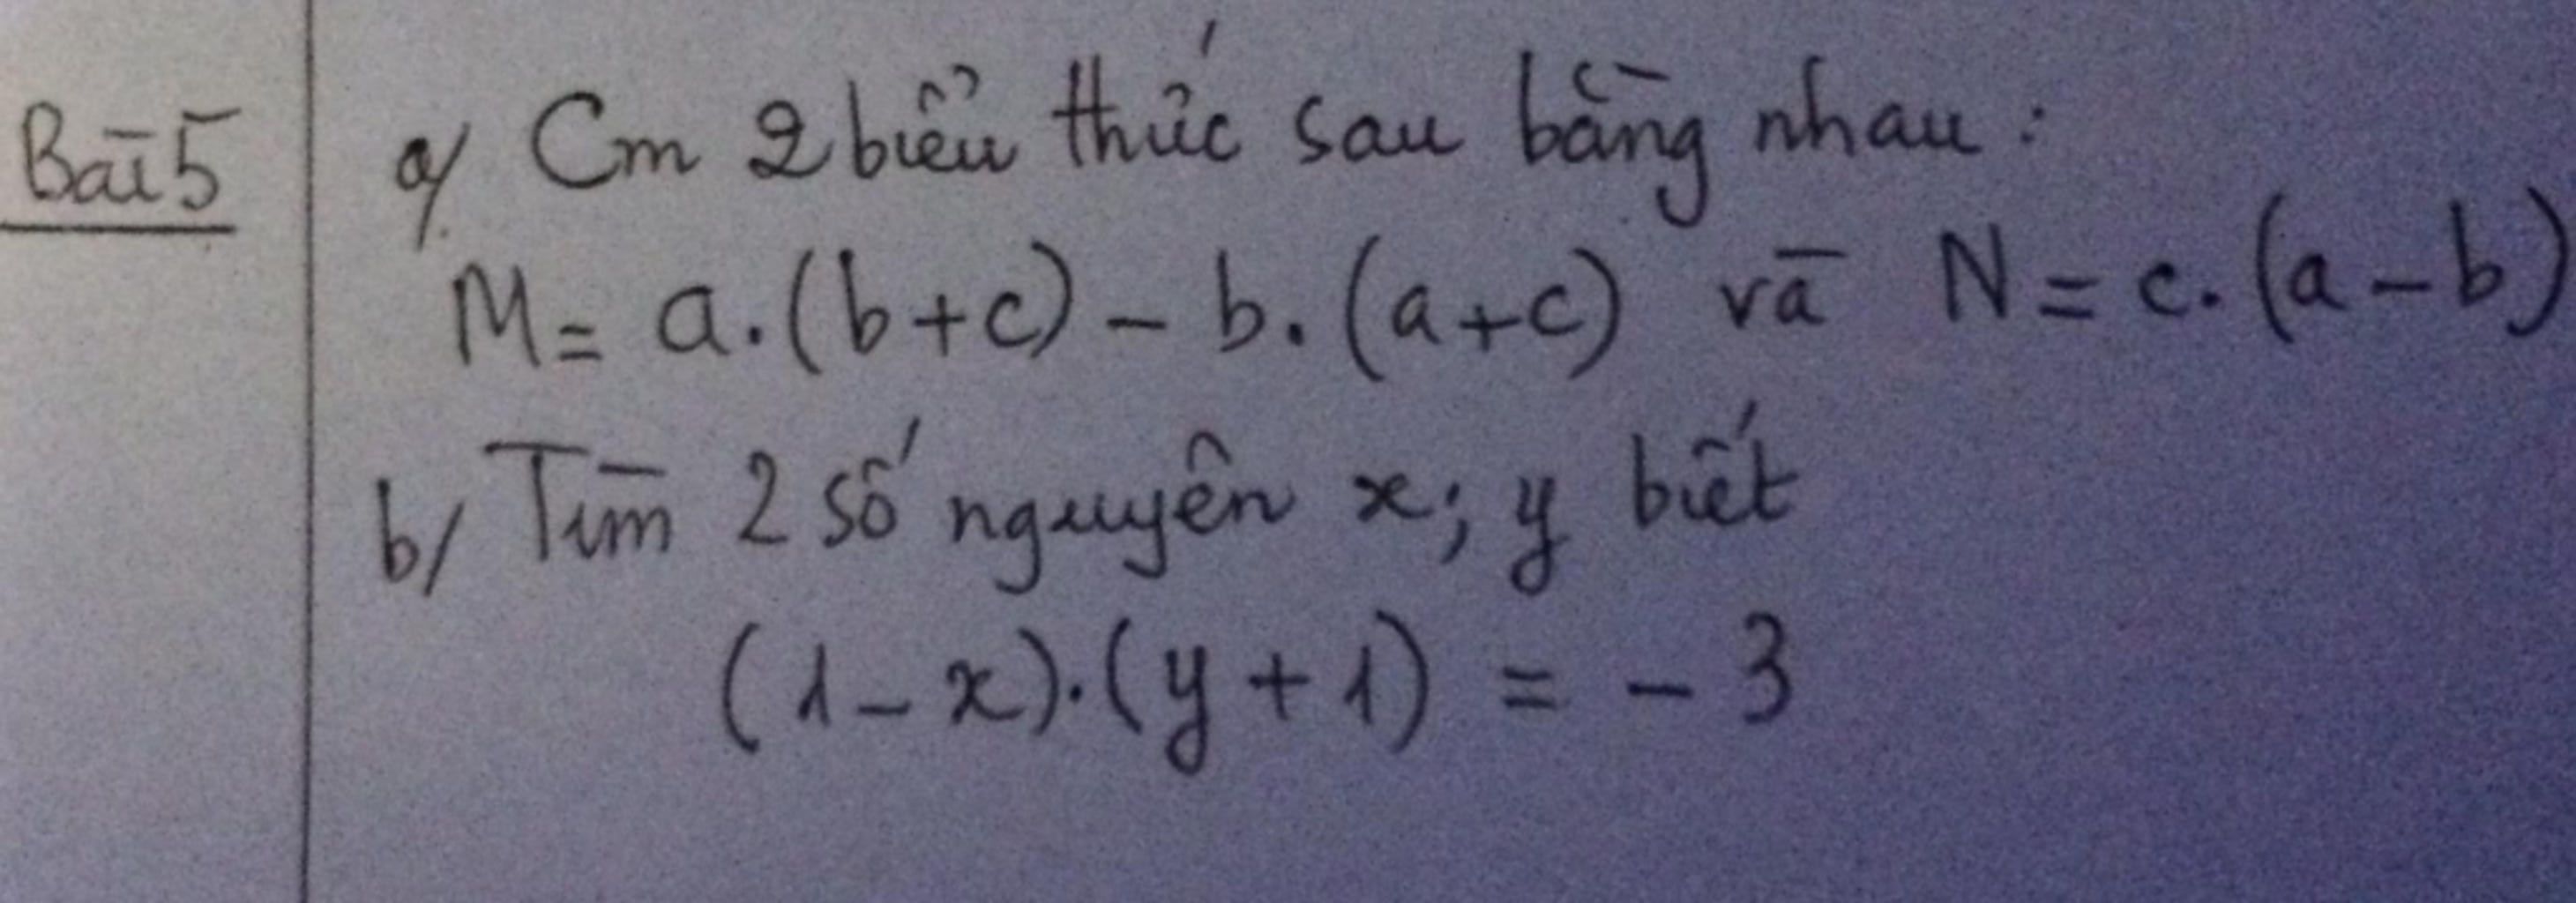 Bài 5
a/ Cm 2 biểu thức sau bằng nhau :
M = a.(b+c) - b.(a+c) và N = c.(a-b)
b/ Tìm 2 số nguyên x; y biết
(1-x).(y+1) = -3